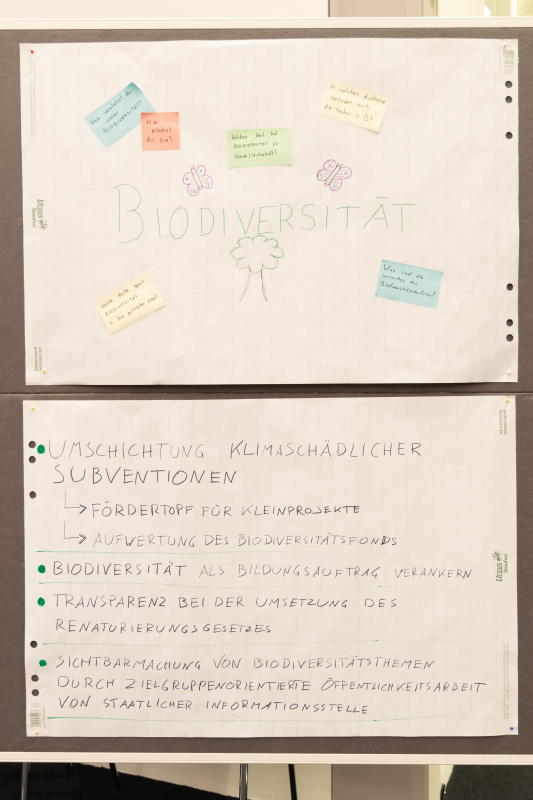 Was verstehst du
unter
BIODIVERSITÄT?
Wie
erlebst
du sie?
Welchen Wert hat
BIODIVERSITÄT für
In welchem Zustand
befindet sich
die Natur in Ö?
BIODIVERSITÄT
Welche Rolle spielt
BIODIVERSITÄT
in
Was sind die
Ursachen des
Ursus
UMSCHICHTUNG KLIMASCHÄDLICHER
SUBVENTIONEN
↳ FÖRDERTOPF FÜR KLEINPROJEKTE
↳ AUFWERTUNG DES BIODIVERSITÄTSFONDS
BIODIVERSITÄT ALS BILDUNGSAUFTRAG VERANKERN
TRANSPARENZ BEI DER UMSETZUNG DES
RENATURIERUNGSGESETZES
SICHTBARMACHUNG VON BIODIVERSITÄTSTHEMEN
DURCH ZIELGRUPPENORIENTIERTE ÖFFENTLICHKEITSARBEIT
VON STAATLICHER INFORMATIONSSTELLE
Ursus